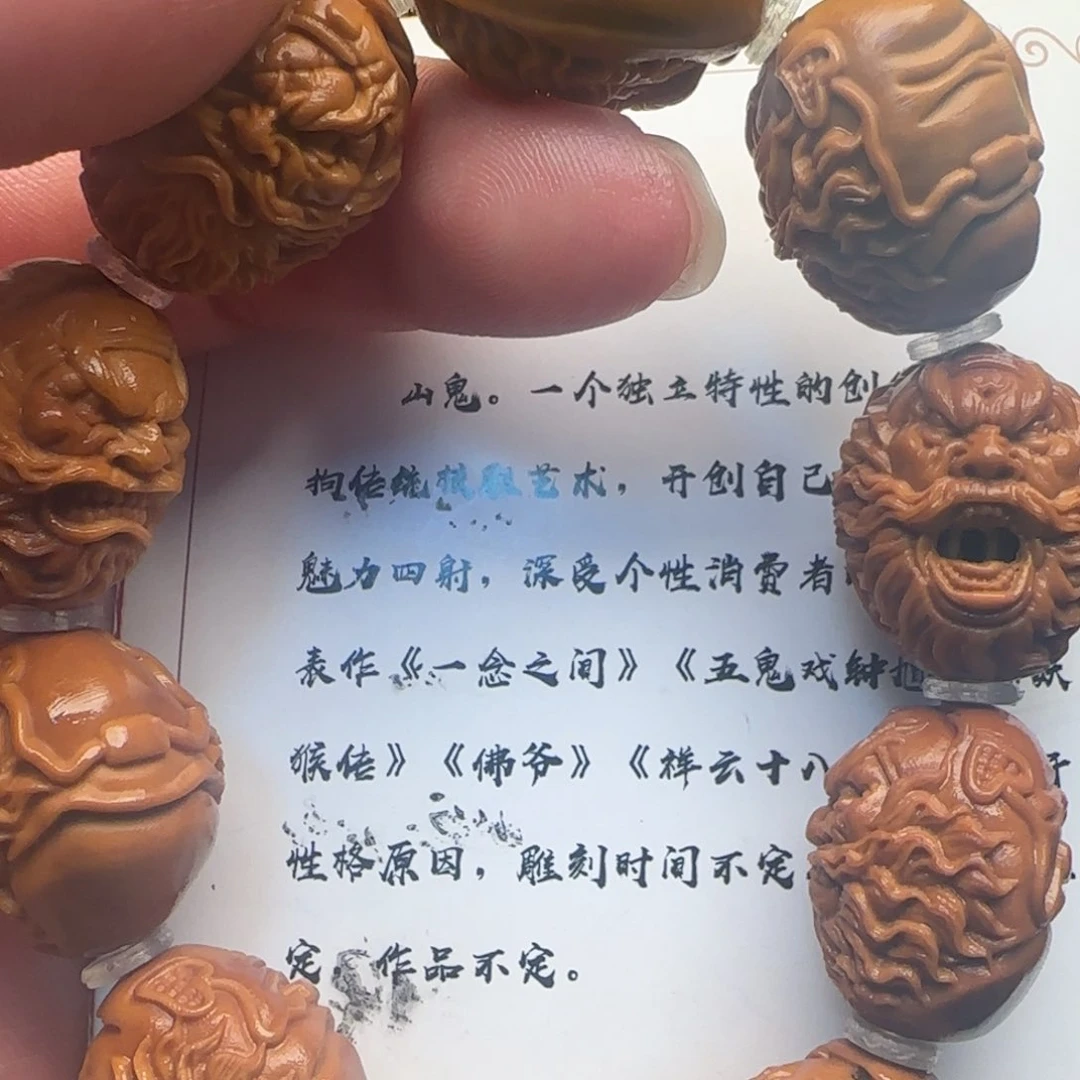 山鬼。一个独立特性的创
拘传统雕刻艺术，开创自己
魅力四射，深受个性消费者
表作《一念之间》《五鬼戏钟馗
猴传》《佛爷》《祥云十八
性格原因，雕刻时间不定
定。作品不定。